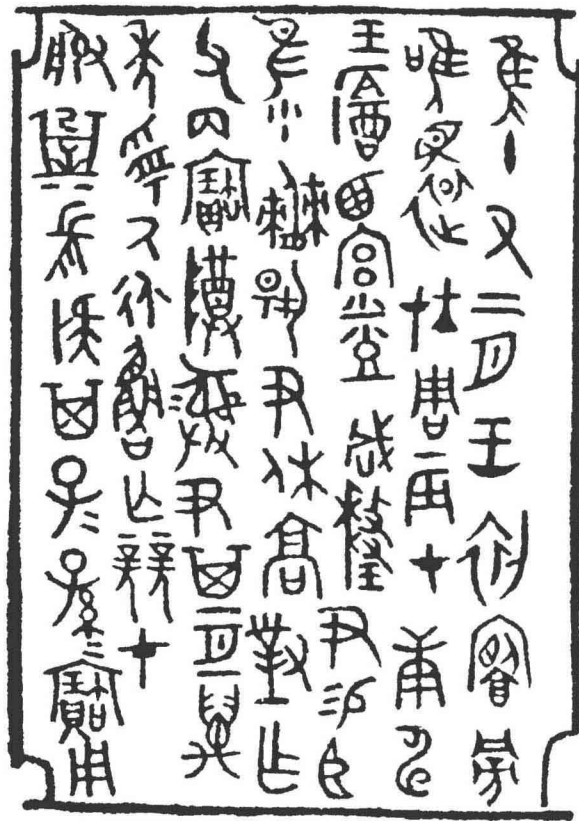 隹十又二月王初旁
唯還在周辰才庚申
王酓西宮烝咸釐尹易臣
隹小僰揚尹休高對乍
父丙寶尊彝尹其亙萬
年受厥永魯亡競才
服㠱長疑其子子孫孫寶用